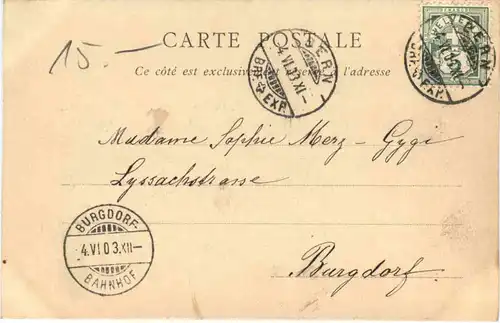 15.-
CARTE POSTALE
Ce côté est exclusivement réservé à l'adresse
BERN
4.VI.03.XI-
BRF. EXP.
HELVETIA
BERN
BRF. EXP.
Madame Sophie Merz-Gygi
Lyssachstrasse
BURGDORF
4.VI.03.XII-
BAHNHOF
Burgdorf.